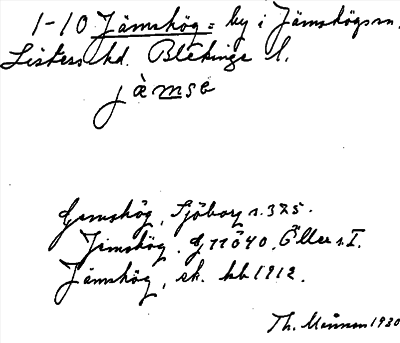 1-10 Jämshög = by i Jämshögs sn.
Listers hd. Blekinge l.
jàmsö
Gemshög, Sjöborg s. 325.
Jemshög. G 1840. Öller s. I.
Jämshög, ek. kb 1912.
Th. Månsson 1930